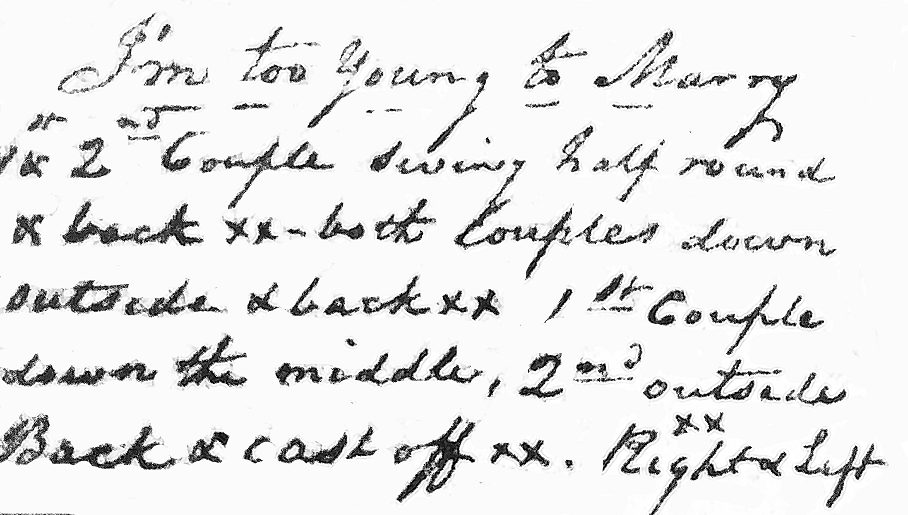 I'm too Young to Marry
1st & 2nd Couple swing half round
& back xx - both Couples down
outside & back xx 1st Couple
down the middle, 2nd outside
Back & cast off xx. Right & Left xx